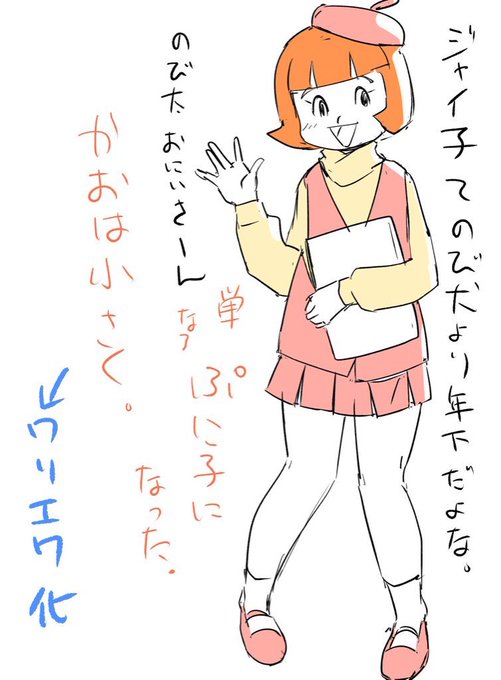 ジャイ子てのび太より年下だよな。
のび太おにいさーん
単なる
ぷに子に
なった。
かおは小さく。
↙クリエク化